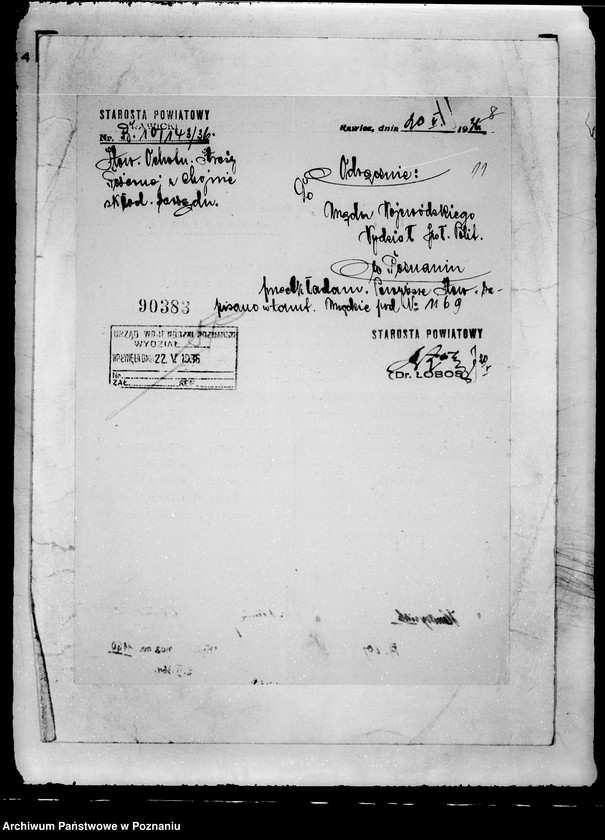 4
STAROSTA POWIATOWY
RAWICKI
Nr. 10/143/36.
Rawicz, dnia 20 V 1936
8
Stow. Ochotn. Straży
Pożarnej w Chojnie
skład. zarządu.
Odręcznie:
11
Do
Urzędu Wojewódzkiego
Wydział Społ. Polit.
w Poznaniu
przedkładam. Powyższe Stow. za-
pisano w tamt. Urzędzie pod № 1169
90383
URZĄD WOJEWÓDZKI POZNAŃSKI
WYDZIAŁ
WPŁYNĘŁO DNIA 22 V 1936
Nr.
ZAŁ. REF.
STAROSTA POWIATOWY
20
V
(Dr. ŁOBOS)
Archiwum Państwowe w Poznaniu